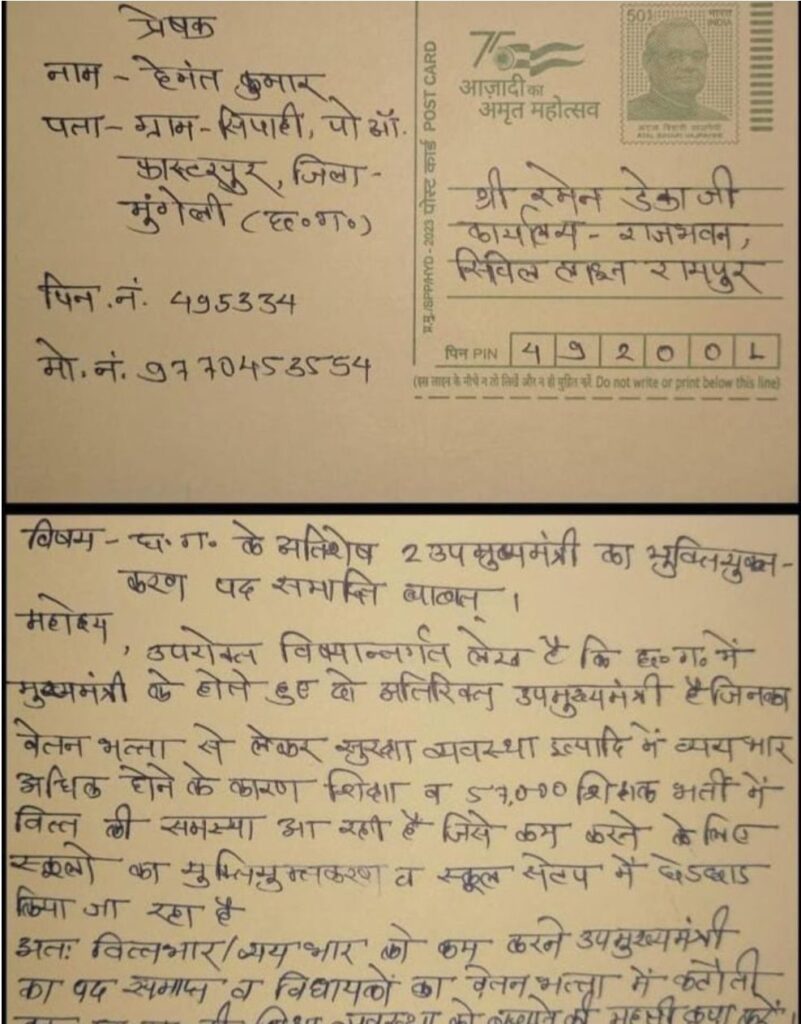 प्रेषक
नाम - हेमंत कुमार
पता - ग्राम - सिपाही, पो ऑ.
फास्टरपुर, जिला -
मुंगेली (छ०ग०)
पिन.नं. 495334
मो.नं. 9770453554
प्र.मु./SPP/HYD - 2023 पोस्ट कार्ड POST CARD
75
आज़ादी का
अमृत महोत्सव
501
भारत
INDIA
अटल बिहारी वाजपेयी
ATAL BIHARI VAJPAYEE
श्री रमेन डेका जी
कार्यालय - राजभवन,
सिविल लाइन रायपुर
पिन PIN 4 9 2 0 0 1
(इस लाइन के नीचे न तो लिखें और न ही मुद्रित करें Do not write or print below this line)
विषय - छ.ग. के अतिशेष 2 उपमुख्यमंत्री का युक्तियुक्त-
करण पद समाप्ति बाबत् ।
महोदय
, उपरोक्त विषयान्तर्गत लेख है कि छ०ग० में
मुख्यमंत्री के होते हुए दो अतिरिक्त उपमुख्यमंत्री है जिनका
वेतन भत्ता से लेकर सुरक्षा व्यवस्था इत्यादि में व्यय भार
अधिक होने के कारण शिक्षा व 57,000 शिक्षक भर्ती में
वित्त की समस्या आ रही है जिसे कम करने के लिए
स्कूलो का युक्तियुक्तकरण व स्कूल सेटप में छेडछाड
किया जा रहा है
अतः वित्तभार/व्यय भार को कम करने उपमुख्यमंत्री
का पद समाप्त व विधायकों का वेतन भत्ता में कटौती
शिक्षा व्यवस्था को की महती कृपा करें ।